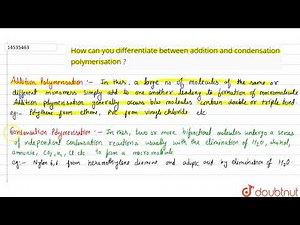 14535463
How can you differentiate between addition and condensation
polymerisation ?
Addition Polymerisation :- In this, a large no of molecules of the same or
different monomers simply add to one another leading to formation of macromolecule
Addition polymerisation generally occurs b/w molecules contain double or triple bond
eg:- Polythene from ethene, PVC from vinyl chloride etc
Condensation Polymerisation :- In this, two or more bifunctional molecules undergo a series
of independent condensation reactions usually with the elimination of H2O, alcohol,
ammonia, CO2, etc to form a macromolecule
eg:- Nylon 6,6 from hexamethylene diamine and adipic acid by elimination of H2O
doubtnut